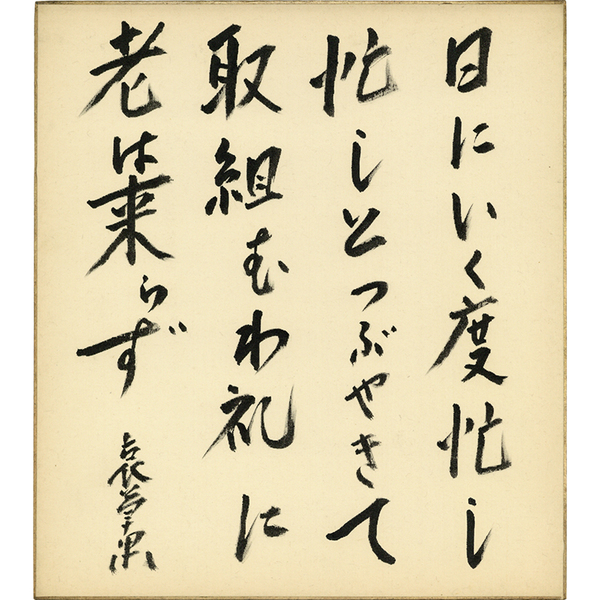 日にいく度忙し
忙しとつぶやきて
取組むわ礼に
老は来らず